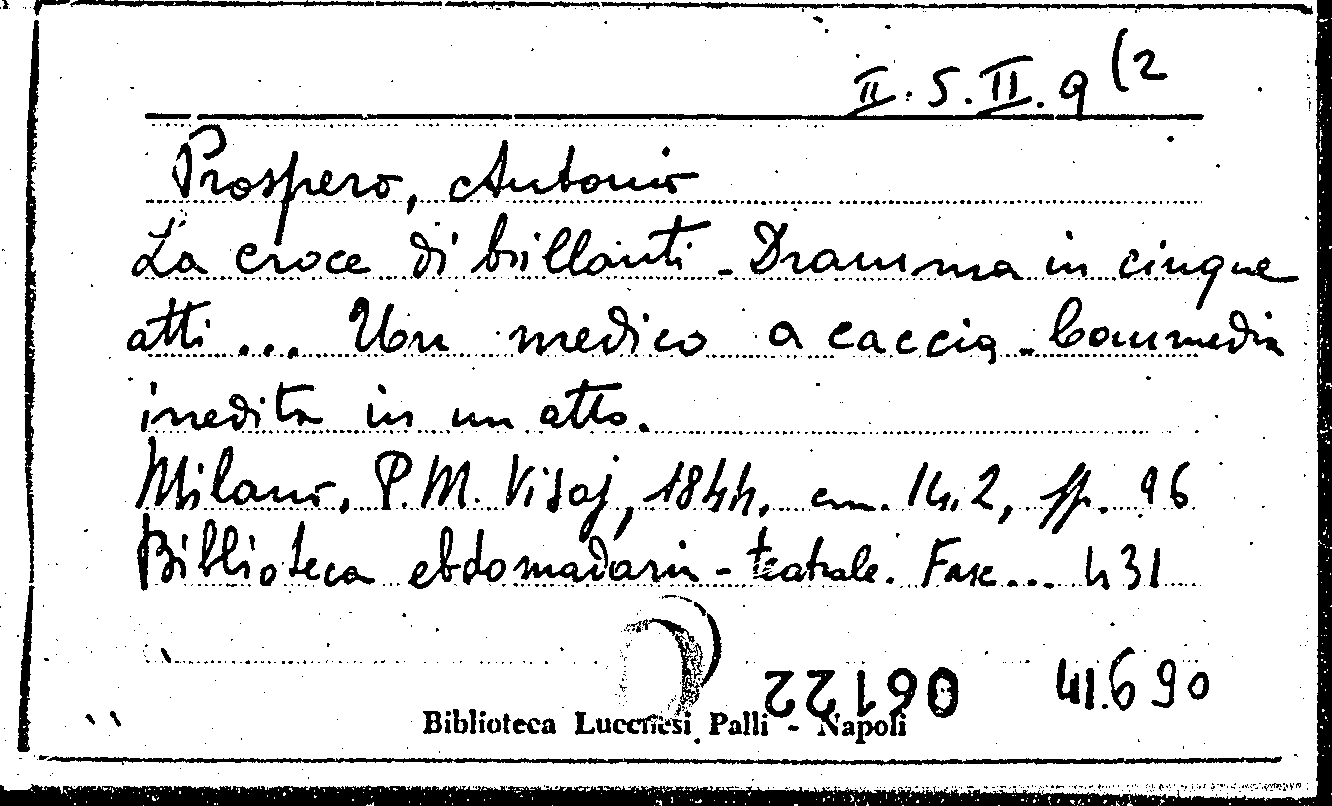 II.5.II.9(2
Prospero, Antonio
La croce di brillanti - Dramma in cinque
atti ... Un medico a caccia - Commedia
inedita in un atto.
Milano, P.M. Visaj, 1844, cm. 14.2, pp. 96
Biblioteca ebdomadaria-teatrale. Fasc... 431
06122 41.690
Biblioteca Lucchesi Palli - Napoli